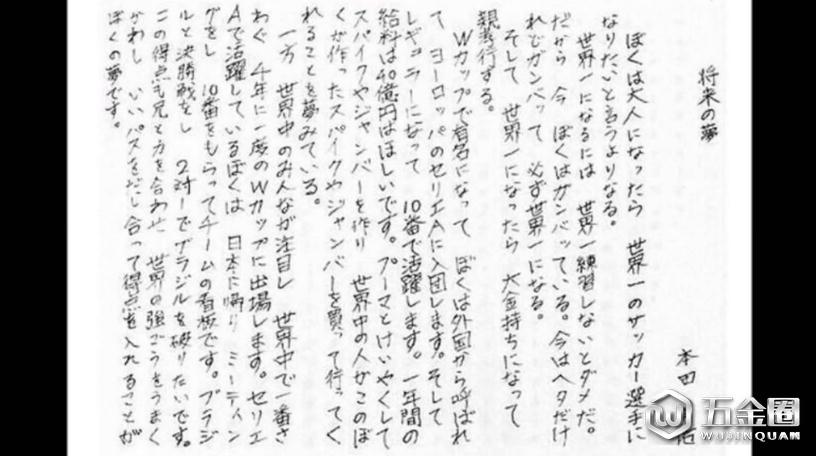 将来の夢
本田
ぼくは大人になったら 世界一のサッカー選手に
なりたいと言うよりなる。
世界一になるには 世界一練習しないとダメだ。
だから 今 ぼくはガンバッている。今はヘタだけ
れどガンバッて 必ず世界一になる。
そして 世界一になったら 大金持ちになって
親孝行する。
Wカップで有名になって ぼくは外国から呼ばれ
て ヨーロッパのセリエAに入団します。そして
レギュラーになって 10番で活躍します。一年間の
給料は40億円はほしいです。プーマとけいやくして
スパイクやジャンバーを作り 世界中の人がこのぼ
くが作ったスパイクやジャンバーを買って行ってく
れることを夢みている。
一方 世界中のみんなが注目し 世界中で一番さ
わぐ 4年に一度のWカップに出場します。セリエ
Aで活躍しているぼくは 日本に帰り ミーティン
グをし 10番をもらってチームの看板です。ブラジ
ルと決勝戦をし 2対1でブラジルを破りたいです。
この得点も兄と力を合わせ 世界の強ごうをうまく
かわし いいパスをだし合って得点を入れることが
ぼくの夢です。
五金圈
WUJINQUAN